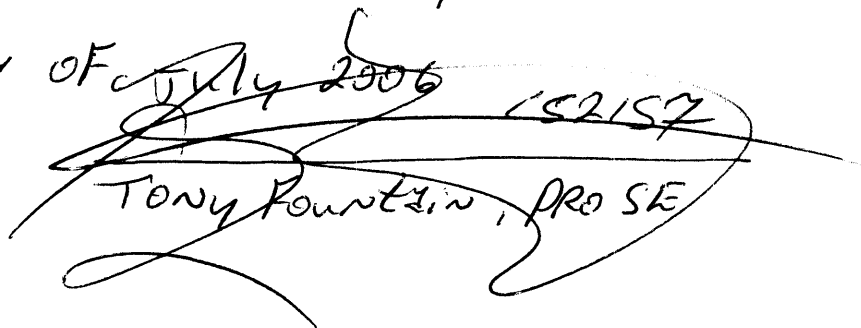 OF July 2006
152157
Tony Fountain, PRO SE